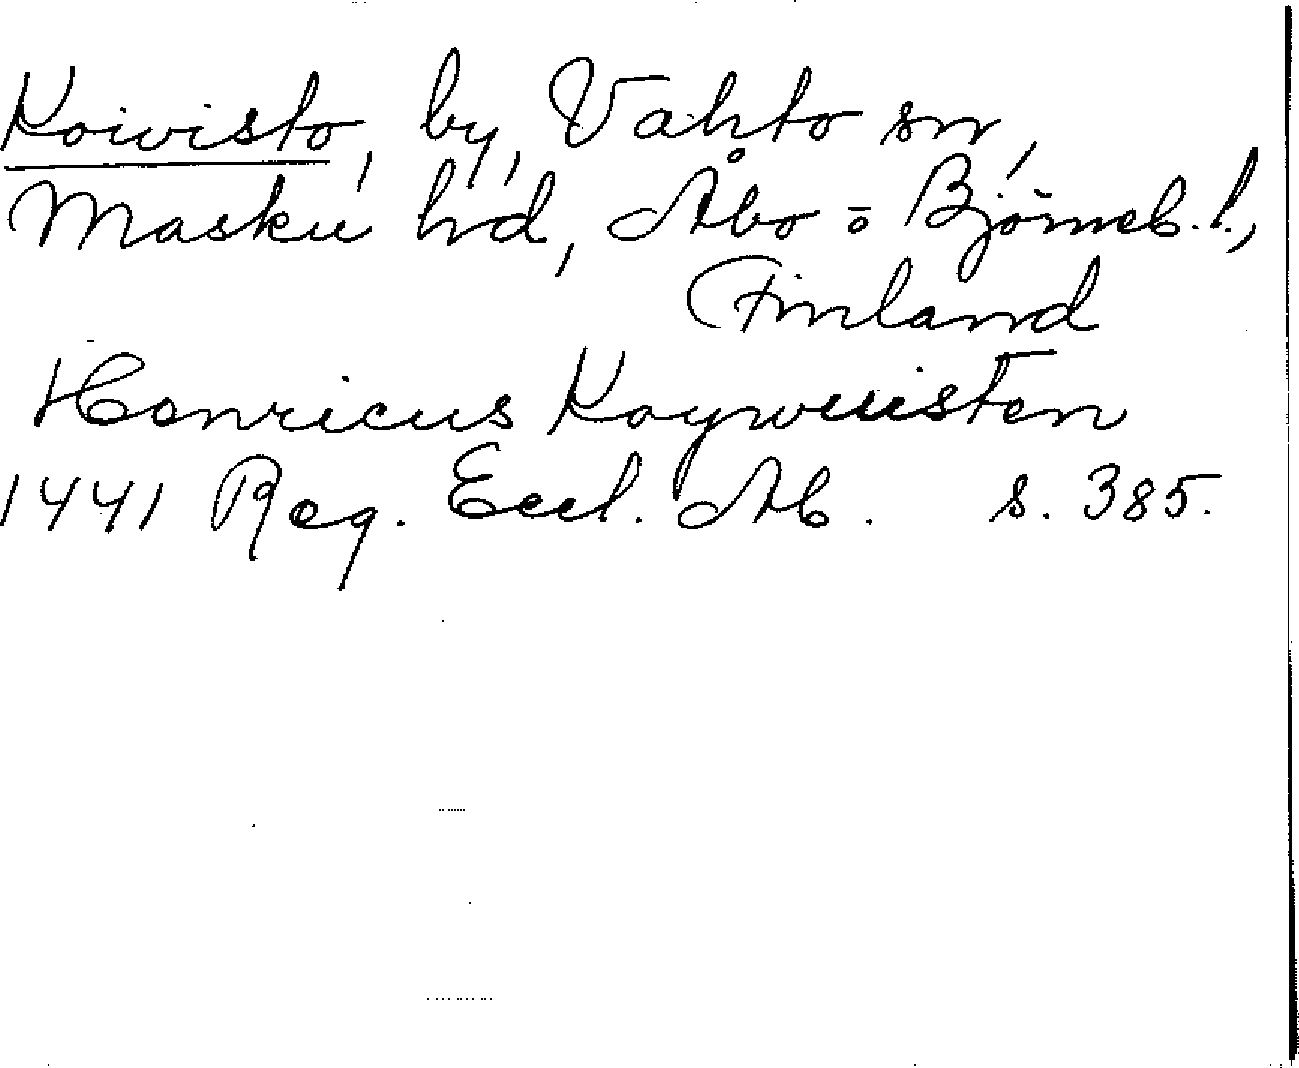 Koivisto, by, Vahto sn,
Masku hd, Åbo o Björneb. l.,
Finland
Henricus Koywuisten
1441 Reg. Eccl. Ab. s. 385.